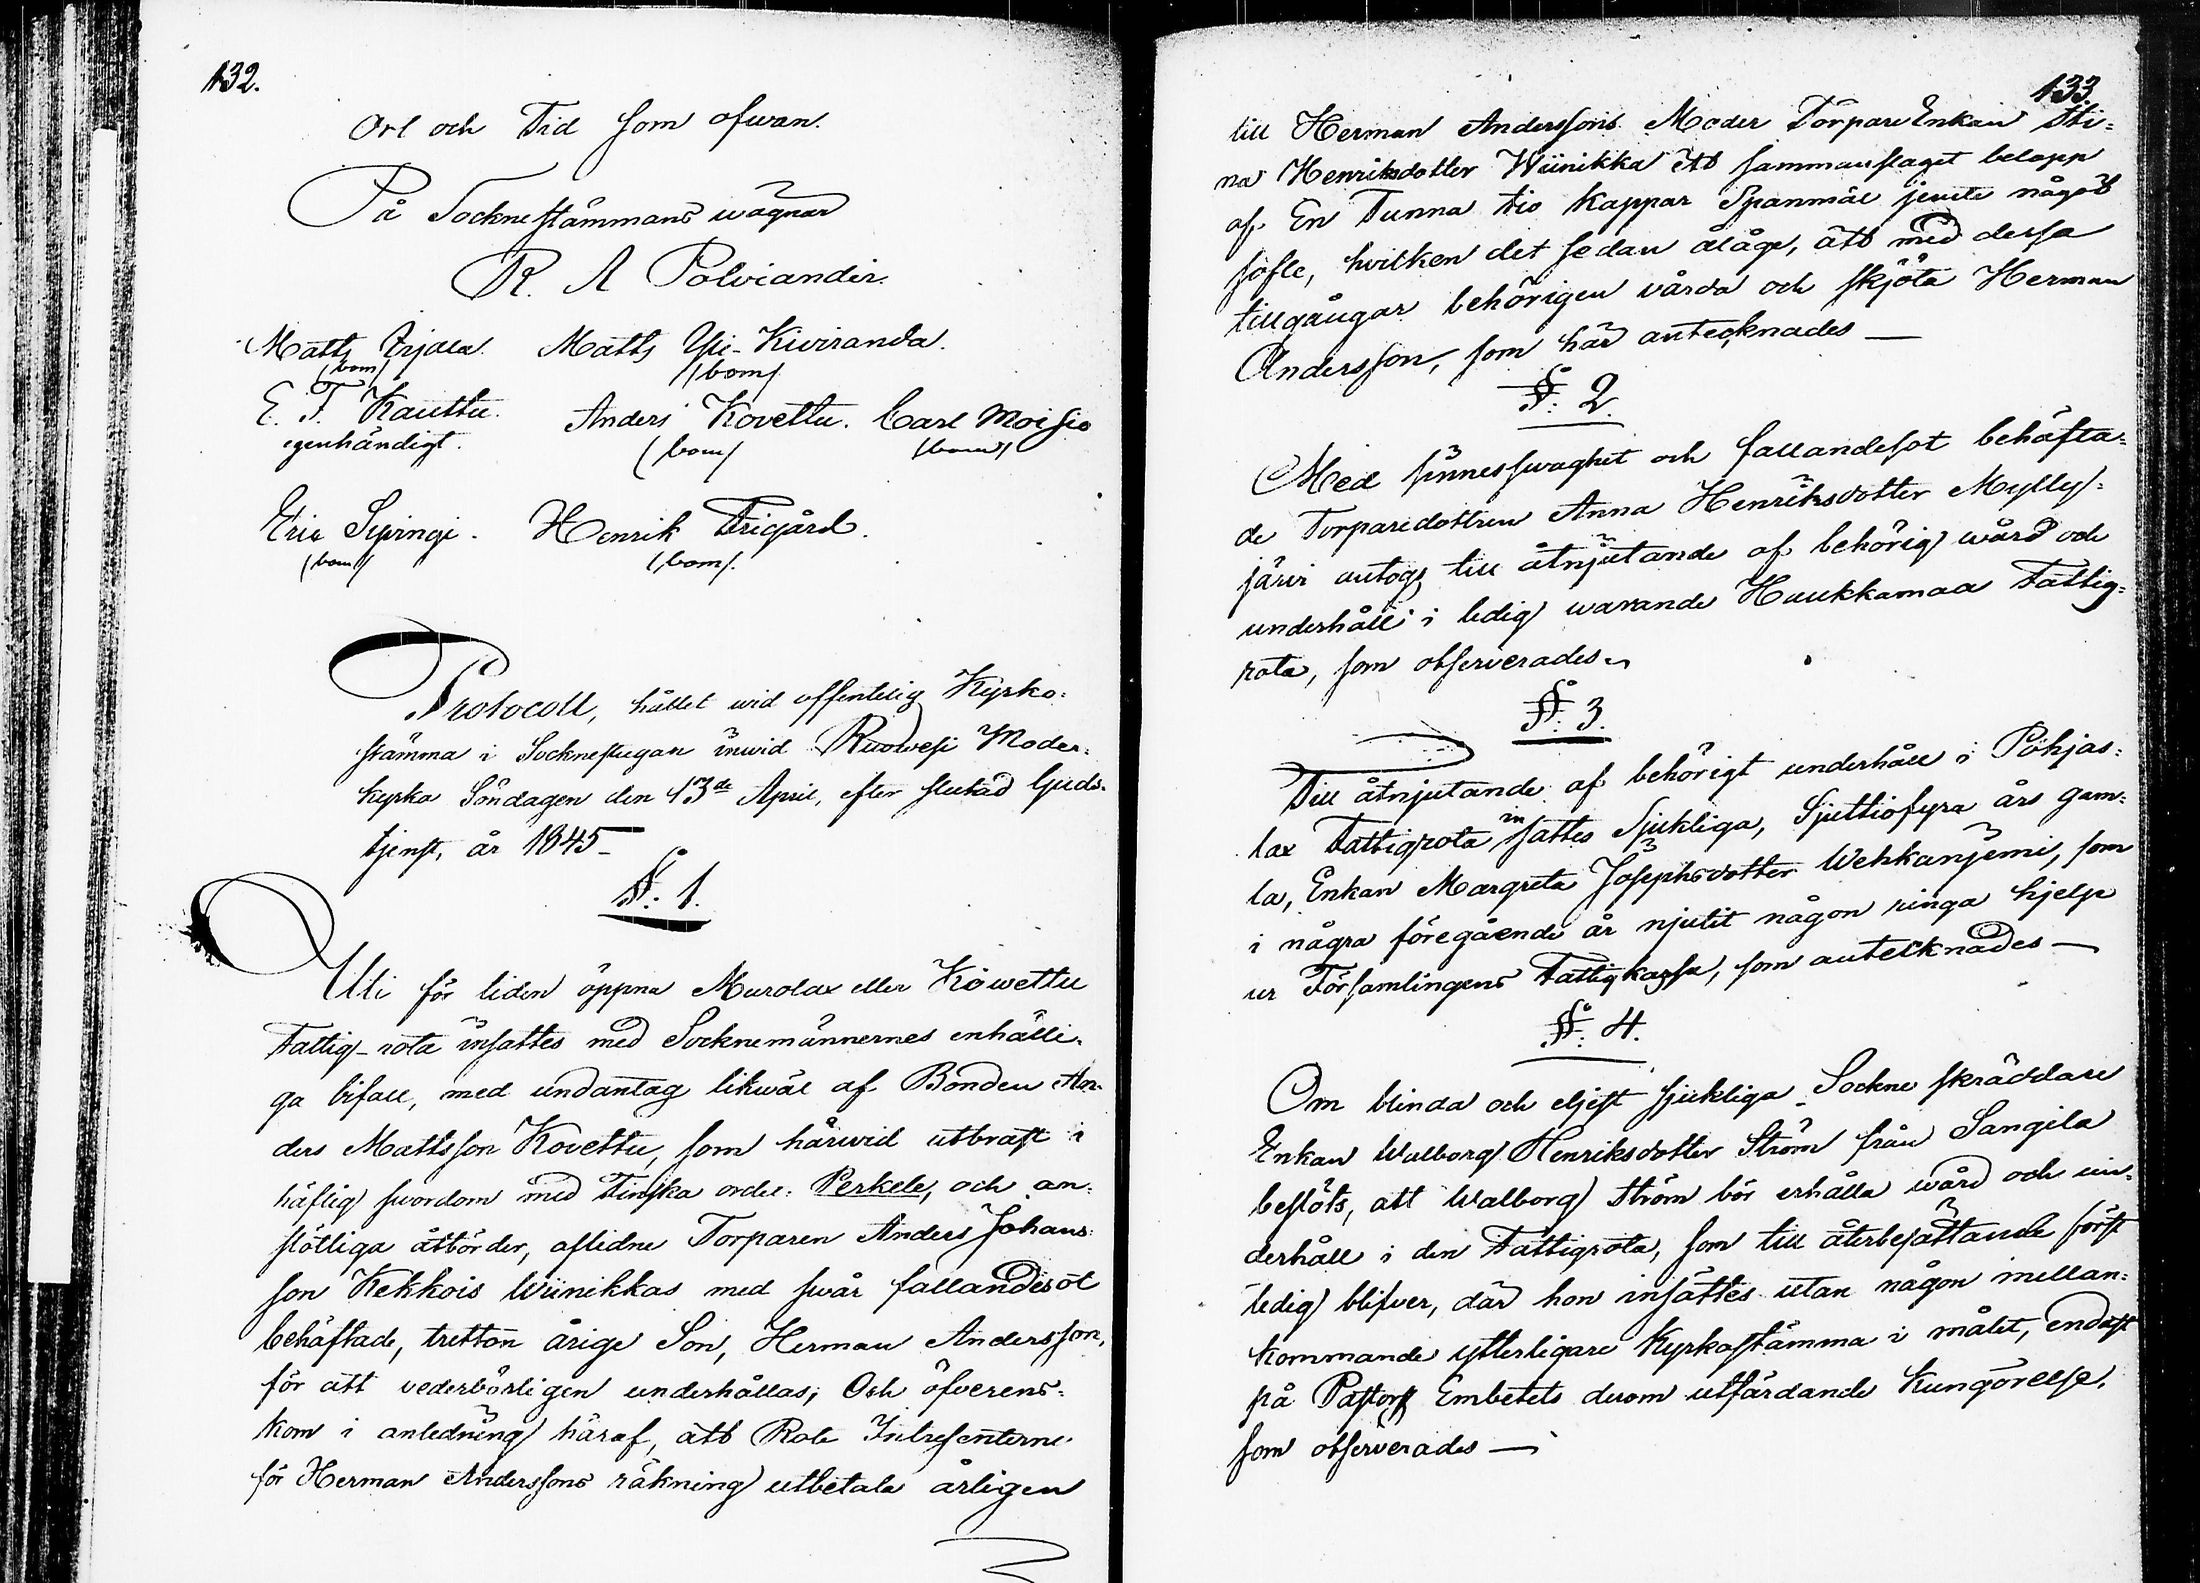 132.
Ort och Tid som ofwan.
På Sockneståmmans wägnar
R. A Polviander.
Matts Arjala. Matts Yli-Kiviranda.
(bom) (bom)
E. F. Kauttu. Anders Kovettu. Carl Moisio
egenhändigt. (bom) (bom)
Eric Sipingi. Henrik Frigård.
(bom) (bom).
Protocoll, hållet wid offentelig Kyrko-
stämma i Socknestugan inwid Ruowesi Moder-
kyrka Söndagen den 13de April, efter slutad Guds-
tjenst, år 1845–
§: 1.
Uti för tiden öppna Murolax eller Kowettu
Fattig-rota insattes med Sockne männernes enhälli-
ga bifall, med undantag likwäl af Bonden An-
ders Mattsson Kovettu, som härwid utbrast i
häftig swordom med Finska ordet: Perkele, och an-
stötliga åtbörder, aflidne Torparen Anders Johans-
son Kekkois Wiinikkas med swår fallandesot
behäftade, tretton årige Son, Herman Andersson,
för att vederbörligen underhållas; Och öfverens-
kom i anledning häraf, att Rote Intressenterne
för Herman Anderssons räkning utbetala årligen
133.
till Herman Anderssons Moder Torpare Enkan Sti-
na Henriksdotter Wiinikka ett sammanslaget belopp
af En Tunna tio Kappar Spanmål jemte något
sofle, hvilken det sedan ålåge, att med dessa
tillgångar behörigen vårda och skjöta Herman
Andersson, som här antecknades –
§: 2.
Med sinnesswaghet och fallandesot behäfta-
de Torparedottren Anna Henriksdotter Mylly-
järwi antogs till åtnjutande af behörig wård och
underhåll i ledig warande Huukkamaa Fattig-
rota, som observerades.
§: 3.
Till åtnjutande af behörigt underhåll i Pohjas-
lax Fattigrota insattes Sjukliga, Sjuttiofyra års gam-
la, Enkan Margreta Josephsdotter Wehkaniemi, som
i några föregående år njutit någon ringa hjelp
ur Församlingens Fattigkassa, som antecknades –
§: 4.
Om blinda och eljest sjukliga Sockne skräddare
Enkan Walborg Henriksdotter Ström från Sangila
beslöts, att Walborg Ström bör erhålla wård och un-
derhåll i den Fattigrota, som till återbesättande först
ledig blifver, där hon insättes utan någon mellan-
kommande ytterligare Kyrkostämma i målet, endast
på Pastors Embetets derom utfärdande Kungörelse.
som observerades –